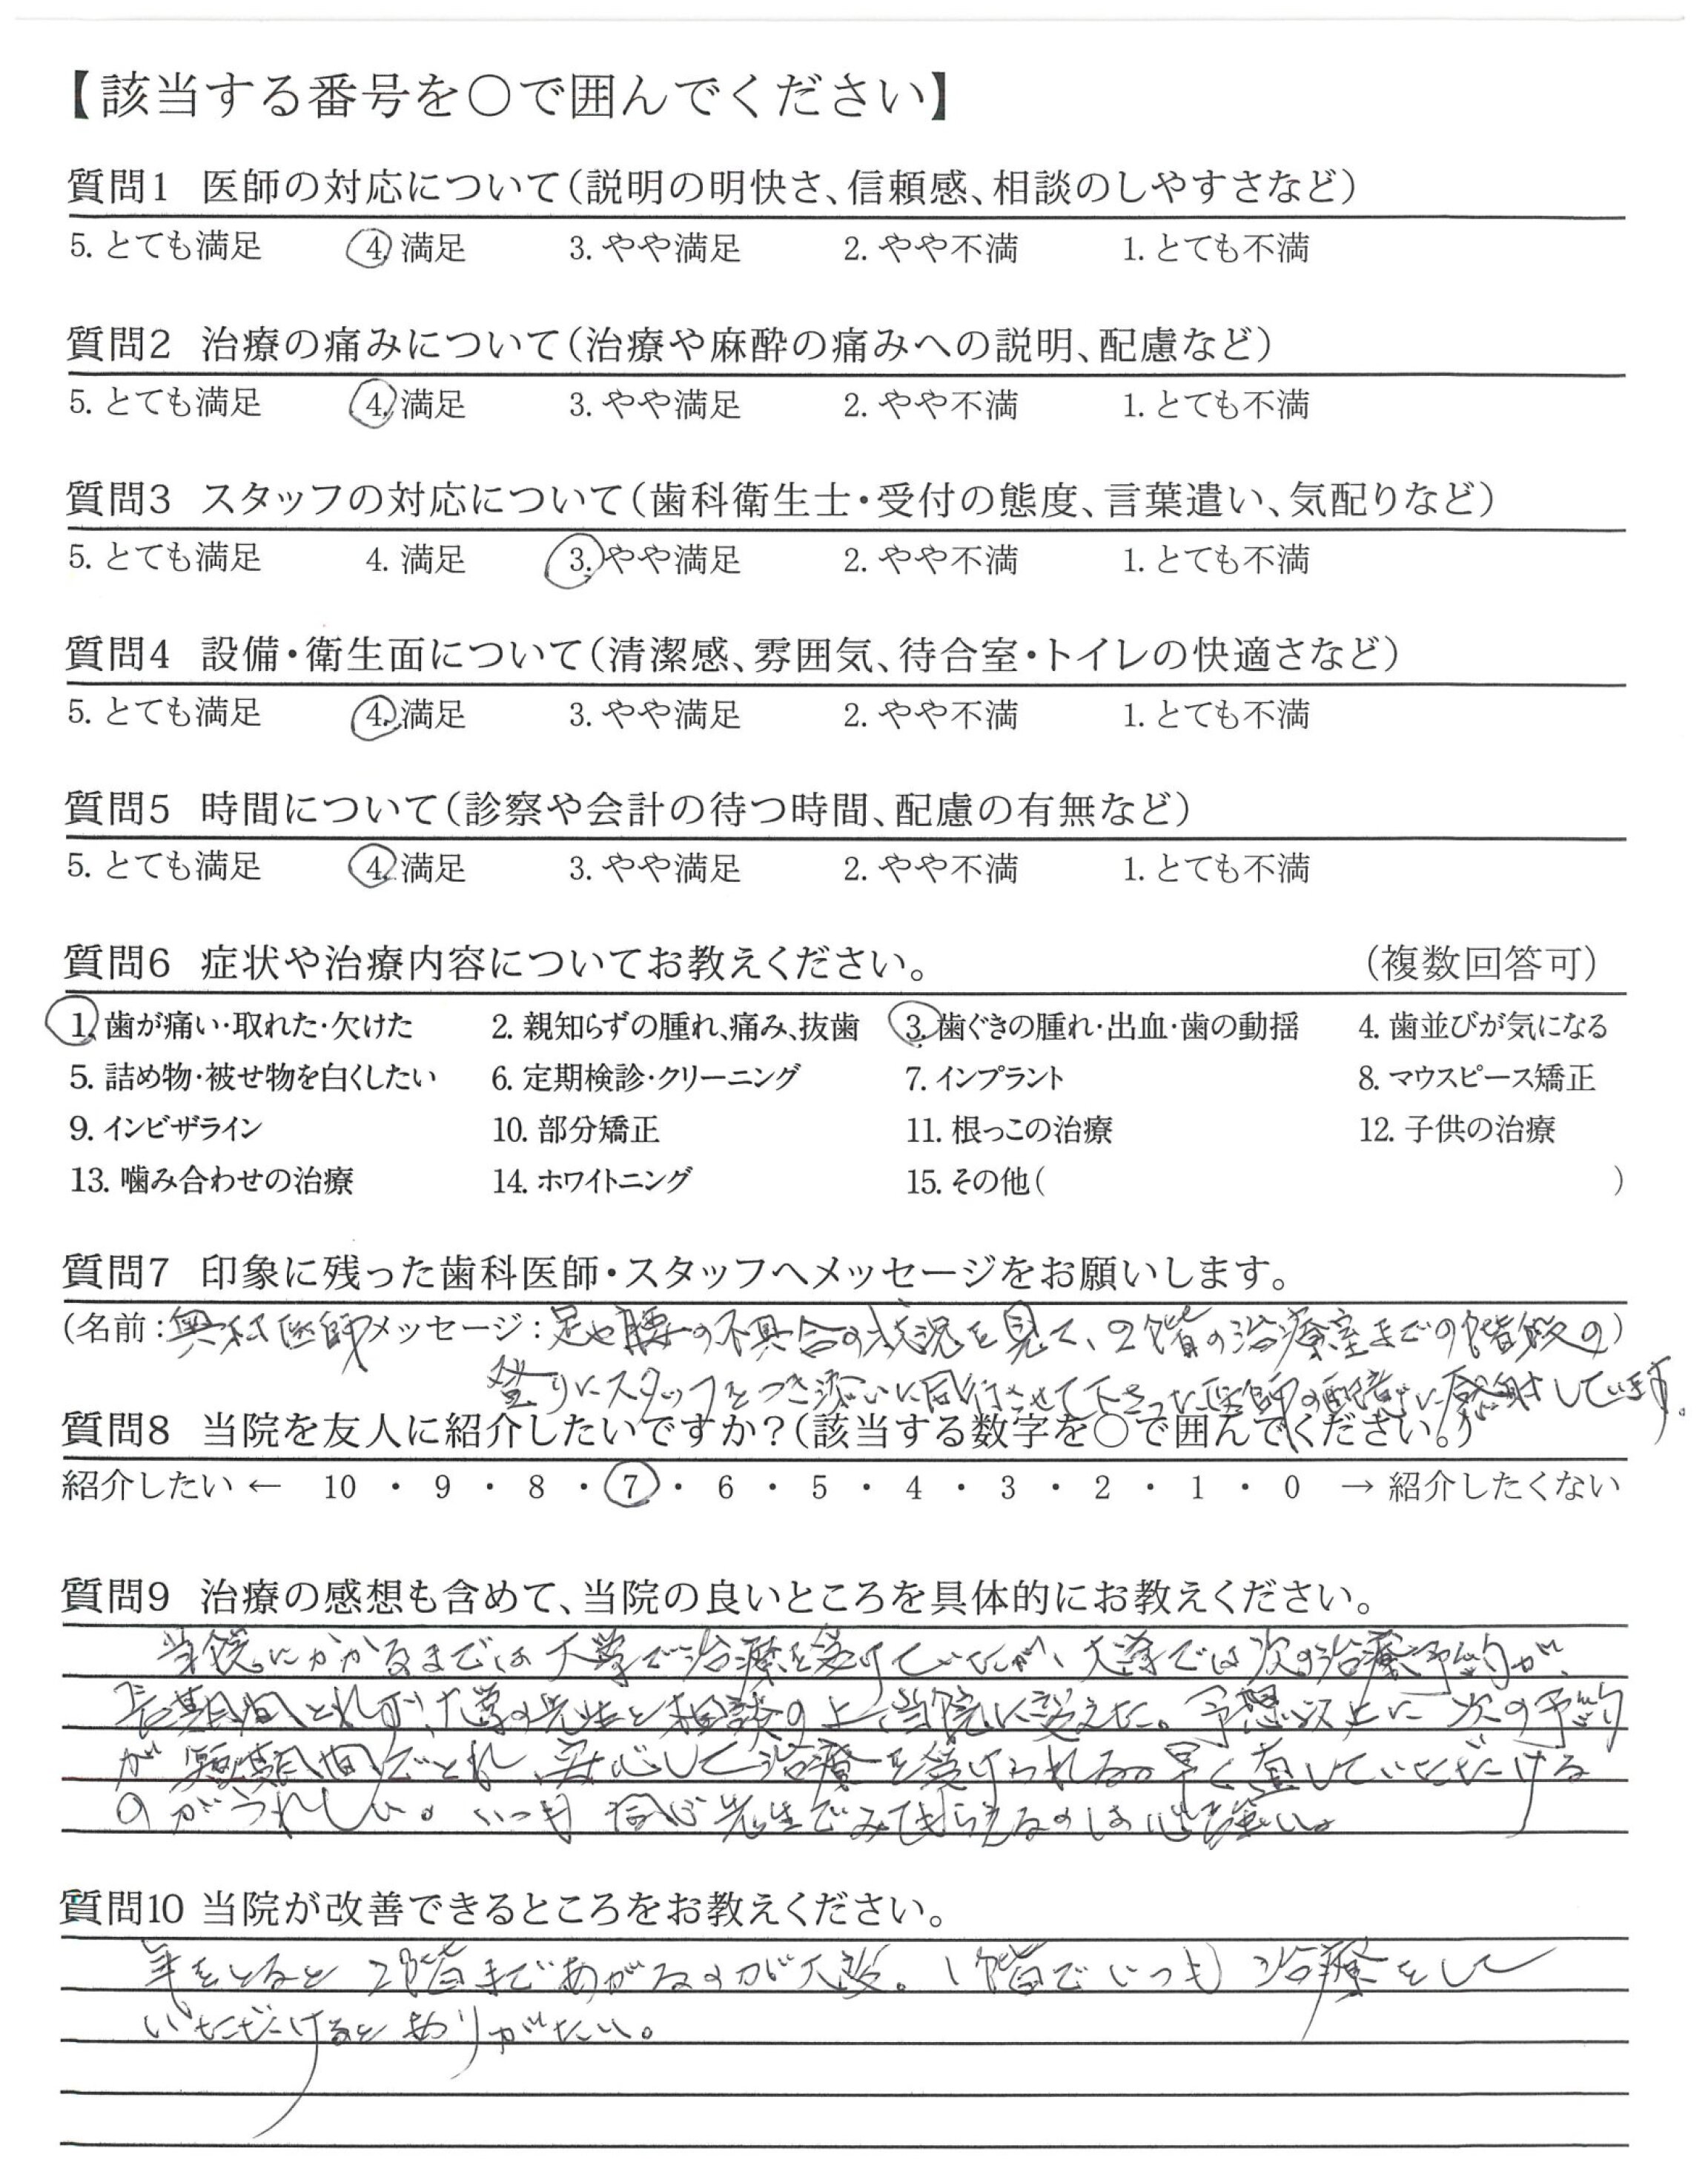 【該当する番号を○で囲んでください】
質問1 医師の対応について（説明の明快さ、信頼感、相談のしやすさなど）
5. とても満足 4. 満足 3. やや満足 2. やや不満 1. とても不満
質問2 治療の痛みについて（治療や麻酔の痛みへの説明、配慮など）
5. とても満足 4. 満足 3. やや満足 2. やや不満 1. とても不満
質問3 スタッフの対応について（歯科衛生士・受付の態度、言葉遣い、気配りなど）
5. とても満足 4. 満足 3. やや満足 2. やや不満 1. とても不満
質問4 設備・衛生面について（清潔感、雰囲気、待合室・トイレの快適さなど）
5. とても満足 4. 満足 3. やや満足 2. やや不満 1. とても不満
質問5 時間について（診察や会計の待つ時間、配慮の有無など）
5. とても満足 4. 満足 3. やや満足 2. やや不満 1. とても不満
質問6 症状や治療内容についてお教えください。 （複数回答可）
1. 歯が痛い・取れた・欠けた 2. 親知らずの腫れ、痛み、抜歯 3. 歯ぐきの腫れ・出血・歯の動揺 4. 歯並びが気になる
5. 詰め物・被せ物を白くしたい 6. 定期検診・クリーニング 7. インプラント 8. マウスピース矯正
9. インビザライン 10. 部分矯正 11. 根っこの治療 12. 子供の治療
13. 噛み合わせの治療 14. ホワイトニング 15. その他（ ）
質問7 印象に残った歯科医師・スタッフへメッセージをお願いします。
（名前：医師 メッセージ：足や腰の不具合の状況を見て、2階の治療室までの階段の）
登りにスタッフをつき添いに同行させて下さった医師の配慮に感謝しています。
質問8 当院を友人に紹介したいですか？（該当する数字を○で囲んでください。）
紹介したい ← 10 ・ 9 ・ 8 ・ 7 ・ 6 ・ 5 ・ 4 ・ 3 ・ 2 ・ 1 ・ 0 → 紹介したくない
質問9 治療の感想も含めて、当院の良いところを具体的にお教えください。
当院にかかるまでは大学で治療を受けていたが、大学では次の治療予約が
長期間とれず、大学の先生と相談の上、当院に変えた。予想以上に次の予約
が短期間でとれ、安心して治療を受けられる。早く直していただける
のがうれしい。いつも同じ先生でみてもらえるのは心強い。
質問10 当院が改善できるところをお教えください。
年をとると2階まであがるのが大変。1階でいつも治療をして
いただけるとありがたい。